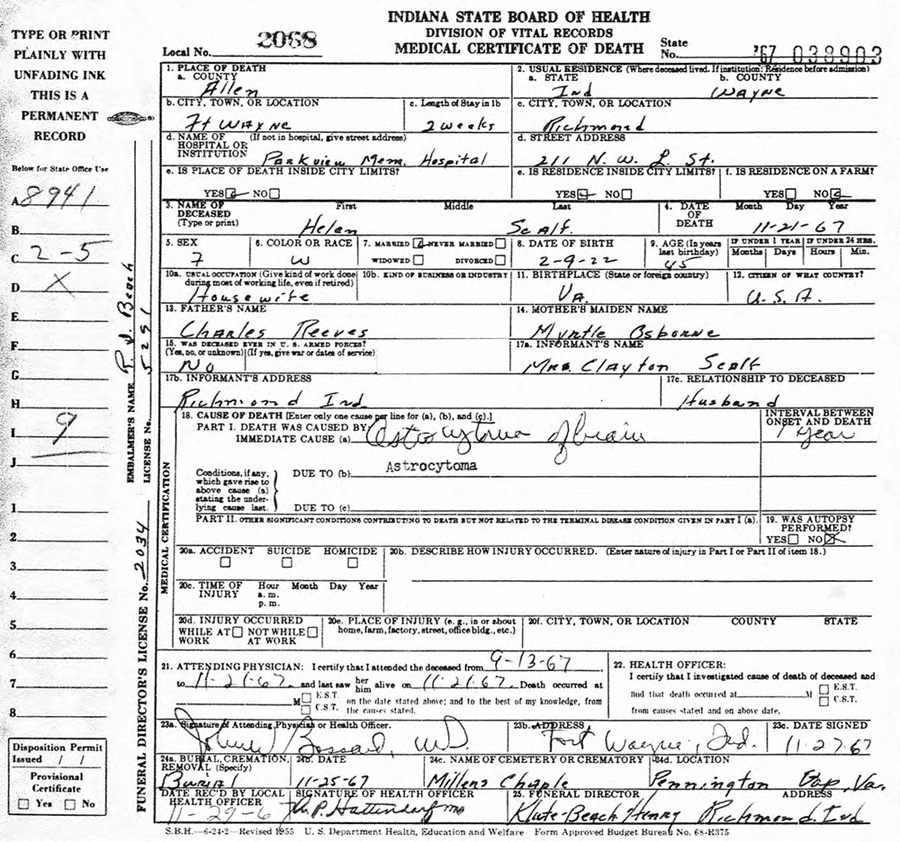 INDIANA STATE BOARD OF HEALTH
DIVISION OF VITAL RECORDS
MEDICAL CERTIFICATE OF DEATH
Local No. 2068
State No. '67 038903
TYPE OR PRINT
PLAINLY WITH
UNFADING INK
THIS IS A
PERMANENT
RECORD
Below for State Office Use
A 8941
B
C 2-5
D X
E
F
G
H
I 9
J
1
2
3
4
5
6
7
8
Disposition Permit
Issued / /
Provisional
Certificate
Yes No
EMBALMER'S NAME R. D. Beach
LICENSE No. 5291
FUNERAL DIRECTOR'S LICENSE No. 2034
1. PLACE OF DEATH
a. COUNTY
Allen
2. USUAL RESIDENCE (Where deceased lived. If institution: Residence before admission)
a. STATE b. COUNTY
Ind Wayne
b. CITY, TOWN, OR LOCATION c. Length of Stay in 1b
Ft Wayne 2 weeks
c. CITY, TOWN, OR LOCATION
Richmond
d. NAME OF HOSPITAL OR INSTITUTION (If not in hospital, give street address)
Parkview Mem. Hospital
d. STREET ADDRESS
211 N. W. L St.
e. IS PLACE OF DEATH INSIDE CITY LIMITS?
YES NO
e. IS RESIDENCE INSIDE CITY LIMITS? f. IS RESIDENCE ON A FARM?
YES NO YES NO
3. NAME OF DECEASED (Type or print) First Middle Last
Helen Scalf
4. DATE OF DEATH Month Day Year
11-21-67
5. SEX 6. COLOR OR RACE 7. MARRIED NEVER MARRIED 8. DATE OF BIRTH 9. AGE (In years last birthday) IF UNDER 1 YEAR IF UNDER 24 HRS.
WIDOWED DIVORCED Months Days Hours Min.
F W 2-9-22 45
10a. USUAL OCCUPATION (Give kind of work done during most of working life, even if retired) 10b. KIND OF BUSINESS OR INDUSTRY 11. BIRTHPLACE (State or foreign country) 12. CITIZEN OF WHAT COUNTRY?
Housewife Va. U.S.A.
13. FATHER'S NAME 14. MOTHER'S MAIDEN NAME
Charles Reeves Myrtle Osborne
15. WAS DECEASED EVER IN U. S. ARMED FORCES? 17a. INFORMANT'S NAME
(Yes, no, or unknown) (If yes, give war or dates of service)
No Mrs Clayton Scalf
17b. INFORMANT'S ADDRESS 17c. RELATIONSHIP TO DECEASED
Richmond Ind Husband
MEDICAL CERTIFICATION
18. CAUSE OF DEATH [Enter only one cause per line for (a), (b), and (c).] INTERVAL BETWEEN ONSET AND DEATH
PART I. DEATH WAS CAUSED BY
IMMEDIATE CAUSE (a) Astrocytoma of brain 1 year
Astrocytoma
Conditions, if any, which gave rise to above cause (a) stating the underlying cause last.
DUE TO (b)
DUE TO (c)
PART II. OTHER SIGNIFICANT CONDITIONS CONTRIBUTING TO DEATH BUT NOT RELATED TO THE TERMINAL DISEASE CONDITION GIVEN IN PART I (a).
19. WAS AUTOPSY PERFORMED?
YES NO
20a. ACCIDENT SUICIDE HOMICIDE 20b. DESCRIBE HOW INJURY OCCURRED. (Enter nature of injury in Part I or Part II of item 18.)
20c. TIME OF INJURY Hour Month Day Year
a. m.
p. m.
20d. INJURY OCCURRED 20e. PLACE OF INJURY (e. g., in or about home, farm, factory, street, office bldg., etc.) 20f. CITY, TOWN, OR LOCATION COUNTY STATE
WHILE AT WORK NOT WHILE AT WORK
21. ATTENDING PHYSICIAN: I certify that I attended the deceased from 9-13-67
to 11-21-67 and last saw her him alive on 11-21-67. Death occurred at
M E.S.T. C.S.T. on the date stated above; and to the best of my knowledge, from the causes stated.
22. HEALTH OFFICER:
I certify that I investigated cause of death of deceased and
find that death occurred at M E.S.T. C.S.T.
from causes and on above date.
23a. Signature of Attending Physician or Health Officer. 23b. ADDRESS 23c. DATE SIGNED
John W Bossard, M.D. Fort Wayne, Ind. 11-27-67
24a. BURIAL, CREMATION, REMOVAL (Specify) 24b. DATE 24c. NAME OF CEMETERY OR CREMATORY 24d. LOCATION
Burial 11-25-67 Millens Chaple Pennington Gap, Va.
DATE REC'D BY LOCAL HEALTH OFFICER SIGNATURE OF HEALTH OFFICER 25. FUNERAL DIRECTOR ADDRESS
11-29-6 Hattendorf MD Klute-Beach Henry Richmond, Ind
S.B.H.—6-24-2—Revised 1955 U. S. Department Health, Education and Welfare Form Approved Budget Bureau No. 68-R375